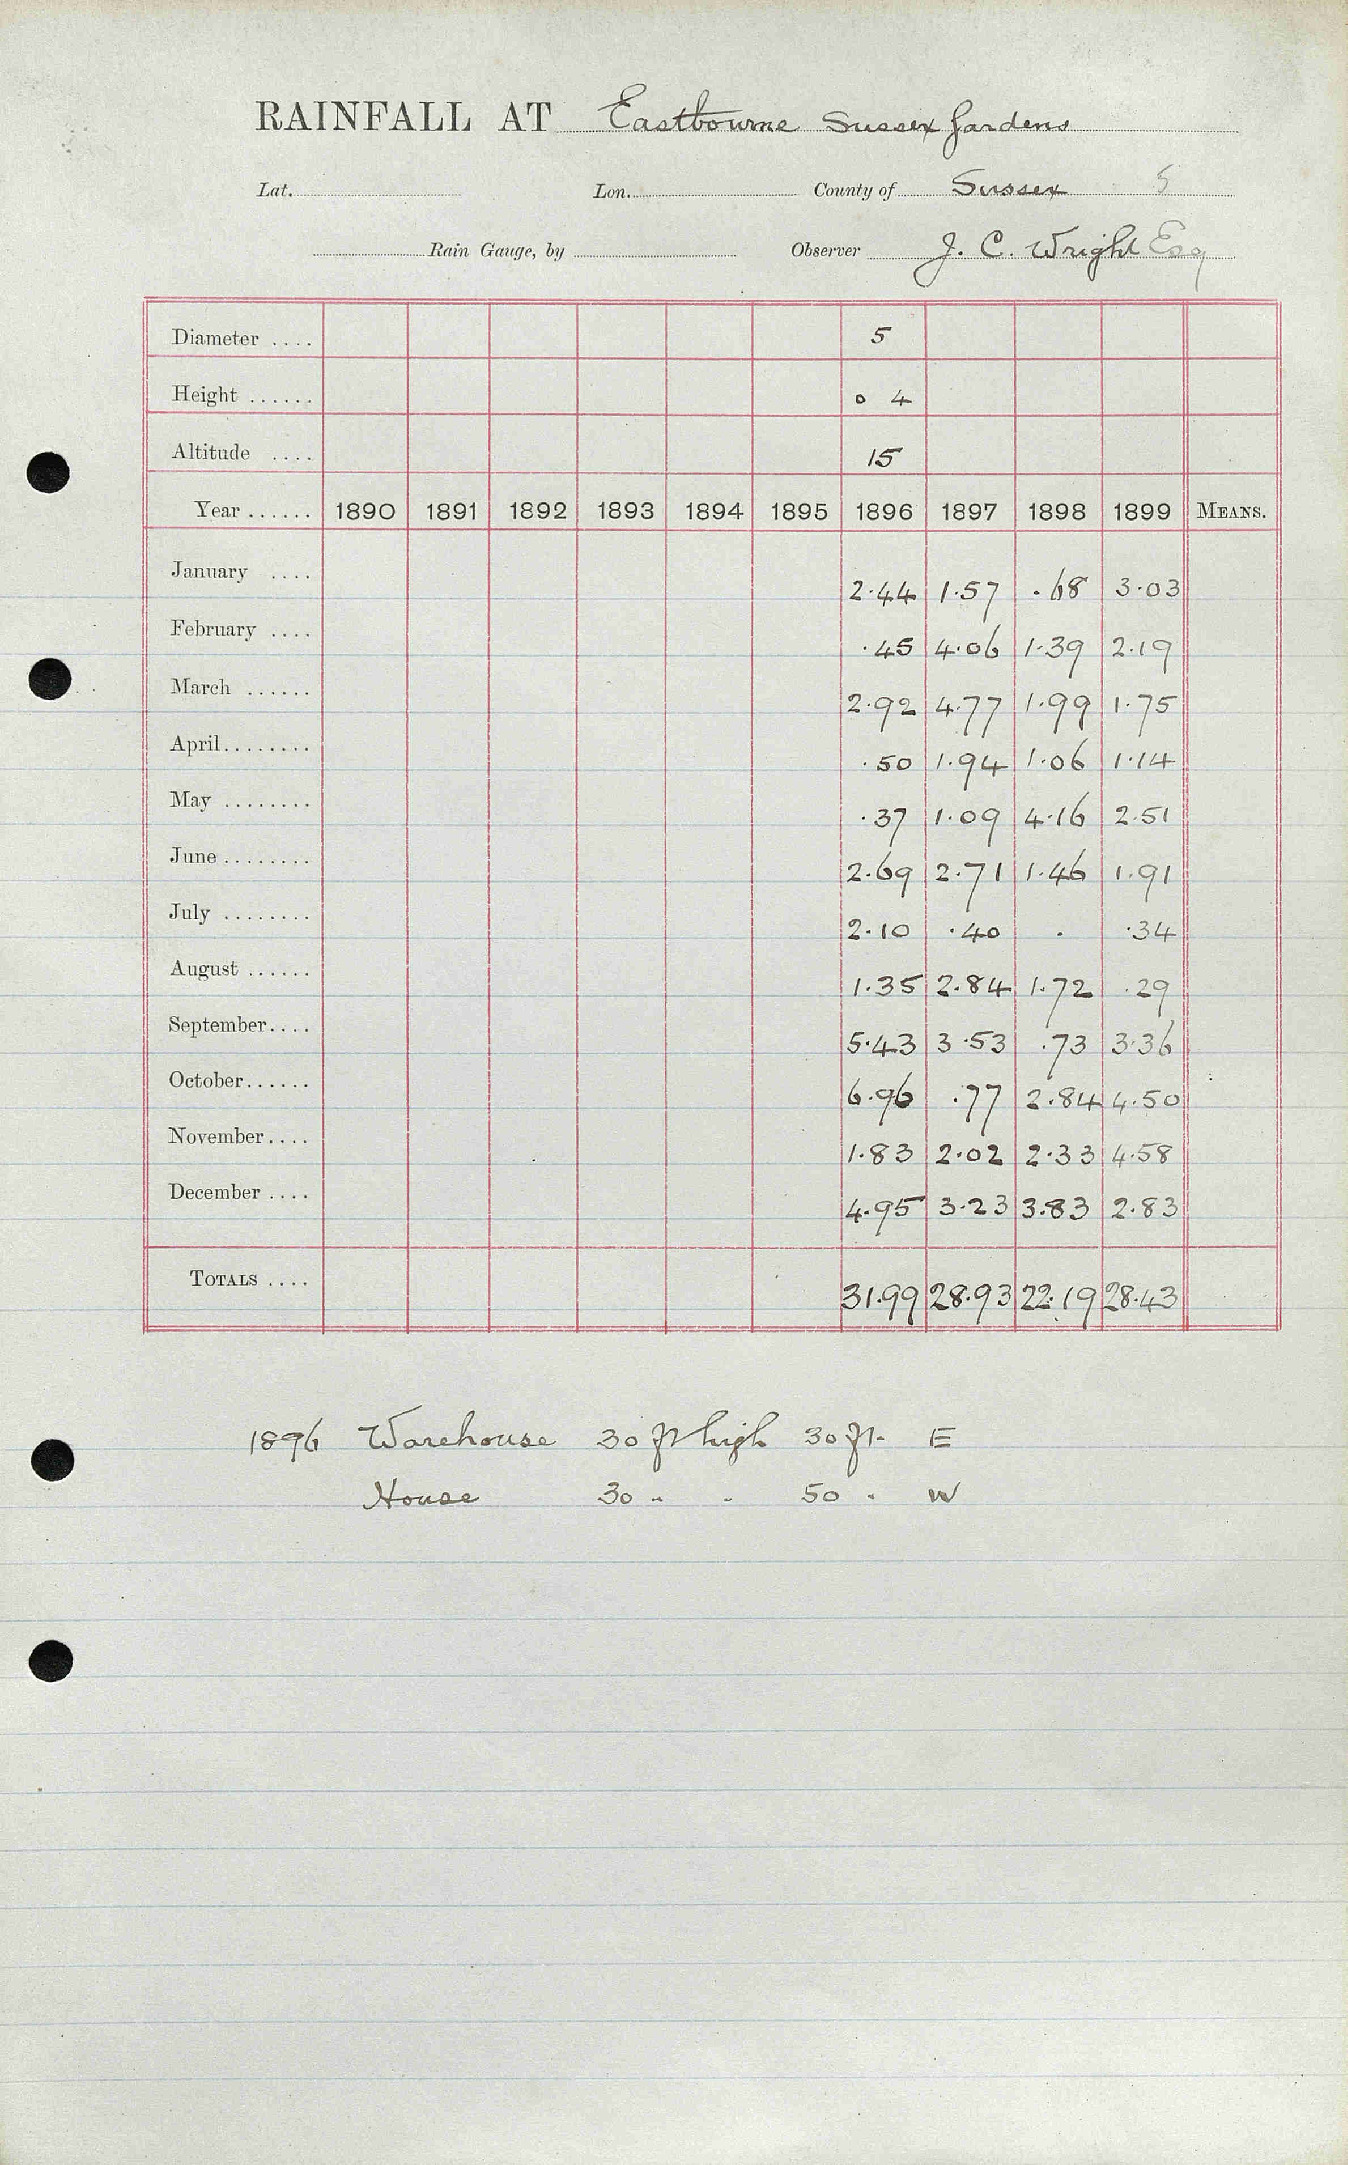 RAINFALL AT Eastbourne Sussex Gardens
Lat. Lon. County of Sussex S
Rain Gauge, by Observer J. C. Wright Esq
Diameter .... 5
Height ...... 0 4
Altitude .... 15
Year ...... 1890 1891 1892 1893 1894 1895 1896 1897 1898 1899 MEANS.
January .... 2.44 1.57 .68 3.03
February .... .45 4.06 1.39 2.19
March ...... 2.92 4.77 1.99 1.75
April ........ .50 1.94 1.06 1.14
May ........ .37 1.09 4.16 2.51
June ........ 2.69 2.71 1.46 1.91
July ........ 2.10 .40 . .34
August ...... 1.35 2.84 1.72 .29
September.... 5.43 3.53 .73 3.36
October...... 6.96 .77 2.84 4.50
November.... 1.83 2.02 2.33 4.58
December .... 4.95 3.23 3.83 2.83
TOTALS .... 31.99 28.93 22.19 28.43
1896 Warehouse 30 ft high 30 ft. E
House 30 " " 50 " W